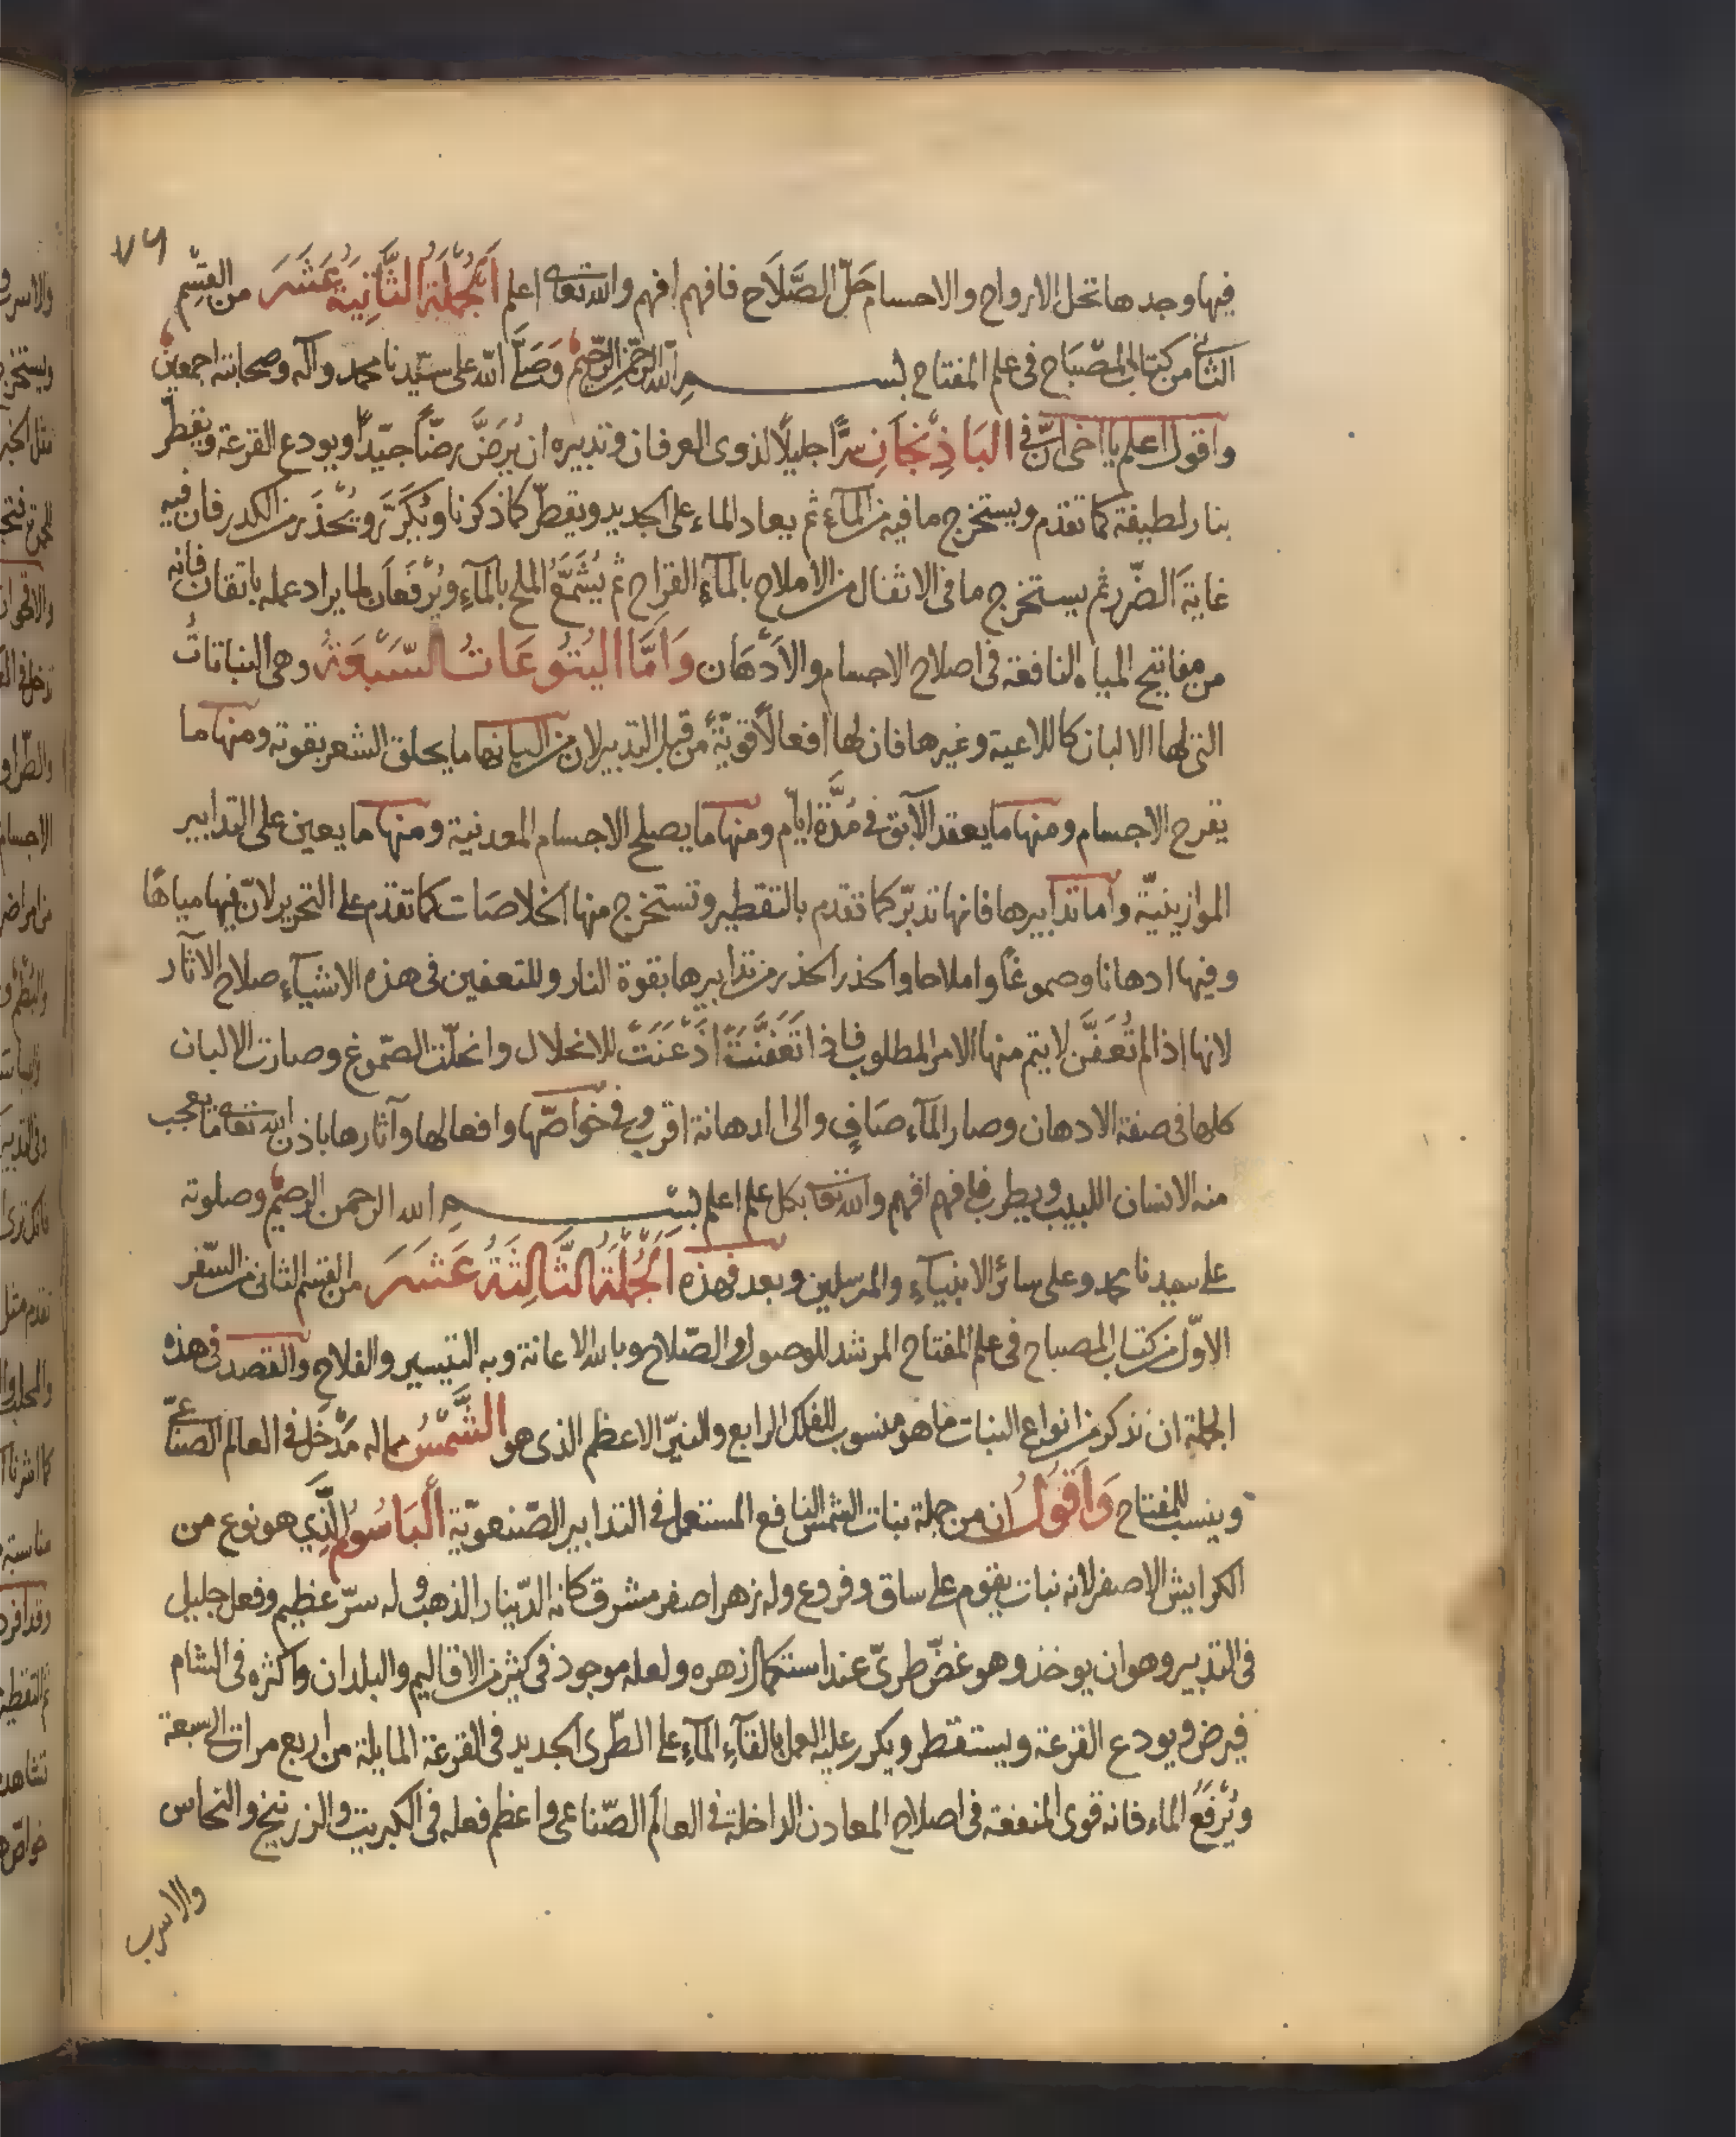 ٧٩
فيها وجدها تحل الارواح والاجسام حَلّ الصَّلَاح فافهم افهم والله تعالى اعلم اَلجُمْلَةُ الثَّانِيَةُ عَشَرَ من القِسْم
الثانى من كتاب المصْبَاح فى علم المفتاح بســـم الله الرحمن الرحيم وَصَلَّى الله على سيّدنا محمد وآله وصحابته اجمعين
واقول اعلم يا اخى انّ فى البَاذِنْجَانِ سرًّا جليلًا لذوى العرفان وتدبيره ان يُرَضَّ رضًّا جيّدًا ويودع القرعة ويقطّر
بنار لطيفة كما تقدم ويستخرج ما فيه من المآء ثم يعاد الماء على الجديد ويقطّر كما ذكرنا ويُكَرَّر ويُحْذَر من الكدر فان فيه
غايَةَ الضّرر ثم يستخرج ما فى الاثفال من الاملاح بالمآءِ القراح ثم يُشَمَّعُ الملح بالمآءِ ويُرْفَعَان لما يراد عمله باتقان فانه
من مفاتيح المياه النافعة فى اصلاح الاجسام والاَدْهَان وَاَمَّا اليَتُوعَاتُ السَّبْعَةُ وهى النباتاتُ
التى لها الالبان كاللاعية وغيرها فان لها افعالًا قويّةً من قبل التدبير لان من البانها ما يحلق الشعر بقوته ومنها ما
يقرح الاجسام ومنها ما يعقد الآبق فى مُدَّة ايّام ومنها ما يصلح الاجسام المعدنية ومنها ما يعين على التدابير
الموازينيّة واما تدابيرها فانها تدبّر كما تقدم بالتقطير وتستخرج منها الخلاصَات كما تقدم على التحرير لانّ فيها مياهًا
وفيها ادهانا وصموغًا واملاحا والحذر الحذر من تدابيرها بقوة النار وللتعفين فى هذه الاشيآءِ صلاح الآثار
لانها اذا لم تُعَفَّن لا يتم منها الامر المطلوب فاذا تَعَفَّنَتْ اَذْعَنَتْ للانحلال وانحلّت الصّموغ وصارت الالبان
كلها فى صفة الادهان وصار المآء صَافٍ والى الدهانة اقرب وفى خواصّها وافعالها وآثارها باذن الله تعالى ما يعجب
منه الانسان اللبيب ويطرب فافهم افهم والله تعالى بكل علم اعلم بســـم الله الرحمن الرحيم وصلوته
على سيدنا محمد وعلى سائر الانبيآءِ والمرسلين وبعد فهذه اَلجُمْلَةُ الثَّالِثَةُ عَشَرَ من القسم الثانى من السّفر
الاوّل من كتاب المصباح فى علم المفتاح المرشد للوصول الى الصّلاح وبالله الاعانة وبه التيسير والفلاح والقصد فى هذه
الجملة ان نذكر من انواع النبات ما هو منسوب للفلك الرابع والنيّر الاعظم الذى هو الشَّمْسُ مما له مَدْخل فى العالم الصناعىّ
وينسب للمفتاح وَاَقُولُ ان من جملة نبات الشمس النافع المستعمل فى التدابير الصّنعويّة اَلبَاسُوم الَّذِى هو نوع من
الكرايش الاصفر لانه نبات يقوم على ساق وفروع وله زهر اصفر مشرق كانه الدّينار الذهب وله سرّ عظيم وفعل جليل
فى التدبير وهو ان يوخذ وهو غضّ طرىّ عند استكمال زهره ولعله موجود فى كثير من الاقاليم والبلدان واكثره فى الشام
فيرض ويودع القرعة ويستقطر ويكرر عليه العمل بالقآءِ المآءِ على الطّرى الجديد فى القرعة المايلة من اربع مرات الى سبعة
ويُرْفَعُ الماء فانه قوى المنفعة فى اصلاح المعادن الداخلة فى العالَم الصّناعى واعظم فعله فى الكبريت والزرنيخ والنحاس
والاسرب